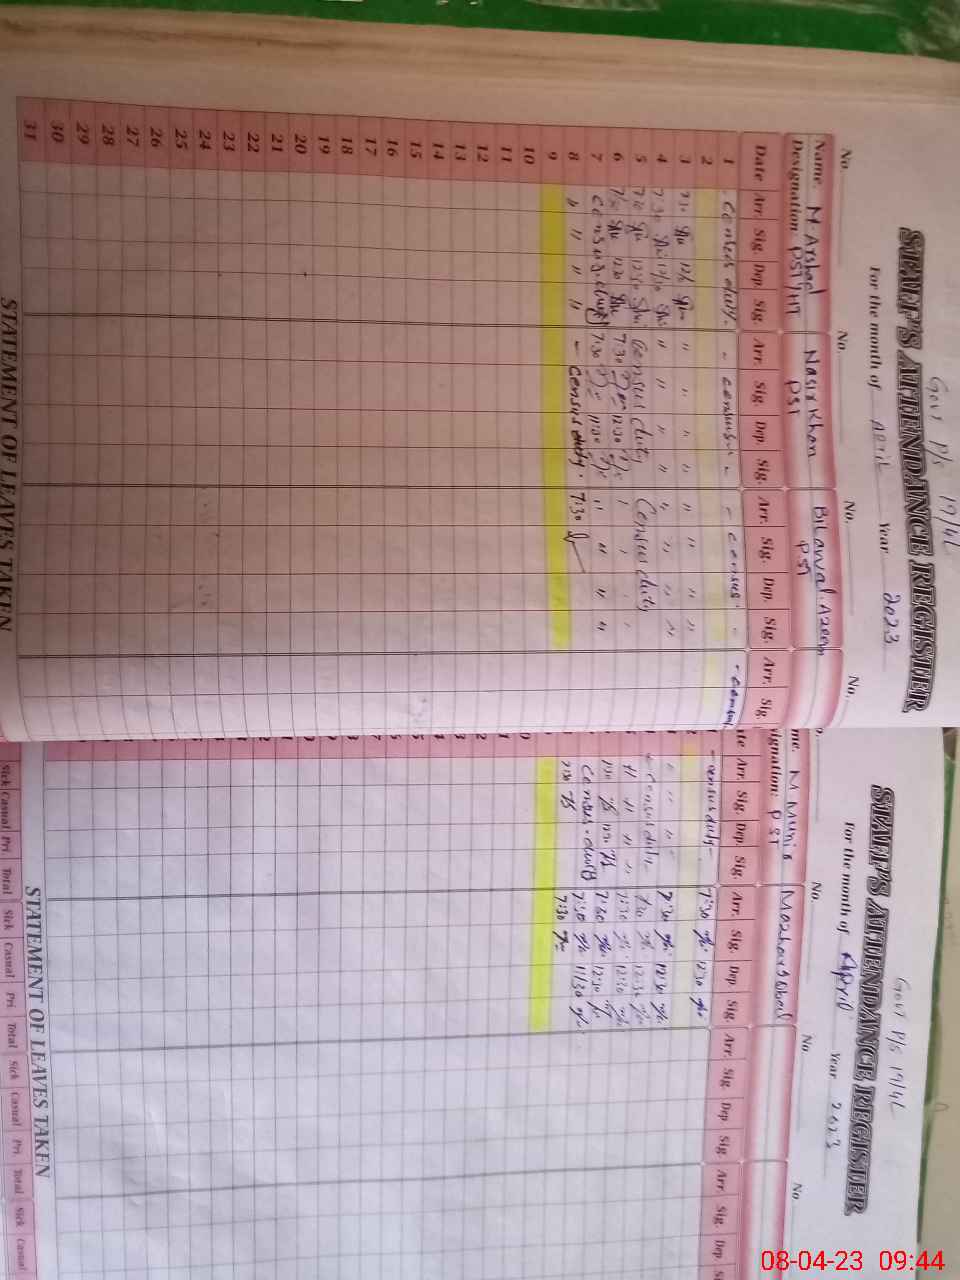 Govt P/S 19/4L
STAFF'S ATTENDANCE REGISTER
For the month of April Year 2023
No. No. No. No.
Name. M Arshad Nasir Khan Bilawal Azeem
Designation: PST/HT PST PST
Date Arr. Sig. Dep. Sig. Arr. Sig. Dep. Sig. Arr. Sig. Dep. Sig. Arr. Sig.
1 Census duty - census - - census -
2
3 7:30 " " " " " " " "
4 7:30 " " " " " " " "
5 7:30 12:30 Census duty Census duty
6 12:30 7:30 12:30
7 Census duty 7:30 11:30 " " " "
8 " " " " - census duty. 7:30
9
10
11
12
13
14
15
16
17
18
19
20
21
22
23
24
25
26
27
28
29
30
31
STATEMENT OF LEAVES TAKEN
Govt P/S 19/4L
STAFF'S ATTENDANCE REGISTER
For the month of April Year 2023
No. No No
M Munir Mazhar Iqbal
PST
Arr. Sig. Dep. Sig. Arr. Sig. Dep. Sig. Arr. Sig. Dep Sig. Arr. Sig. Dep.
- census duty - 7:30 12:30
" " " " 7:30 12:30
census duty 7:30 12:30
" " " " 7:30 12:30
7:30 12:30 7:30 12:30
Census duty 7:30 11:30
7:30 7:30
STATEMENT OF LEAVES TAKEN
Sick Casual Pri. Total Sick Casual Pri Total Sick Casual Pri. Total Sick Casual
08-04-23 09:44